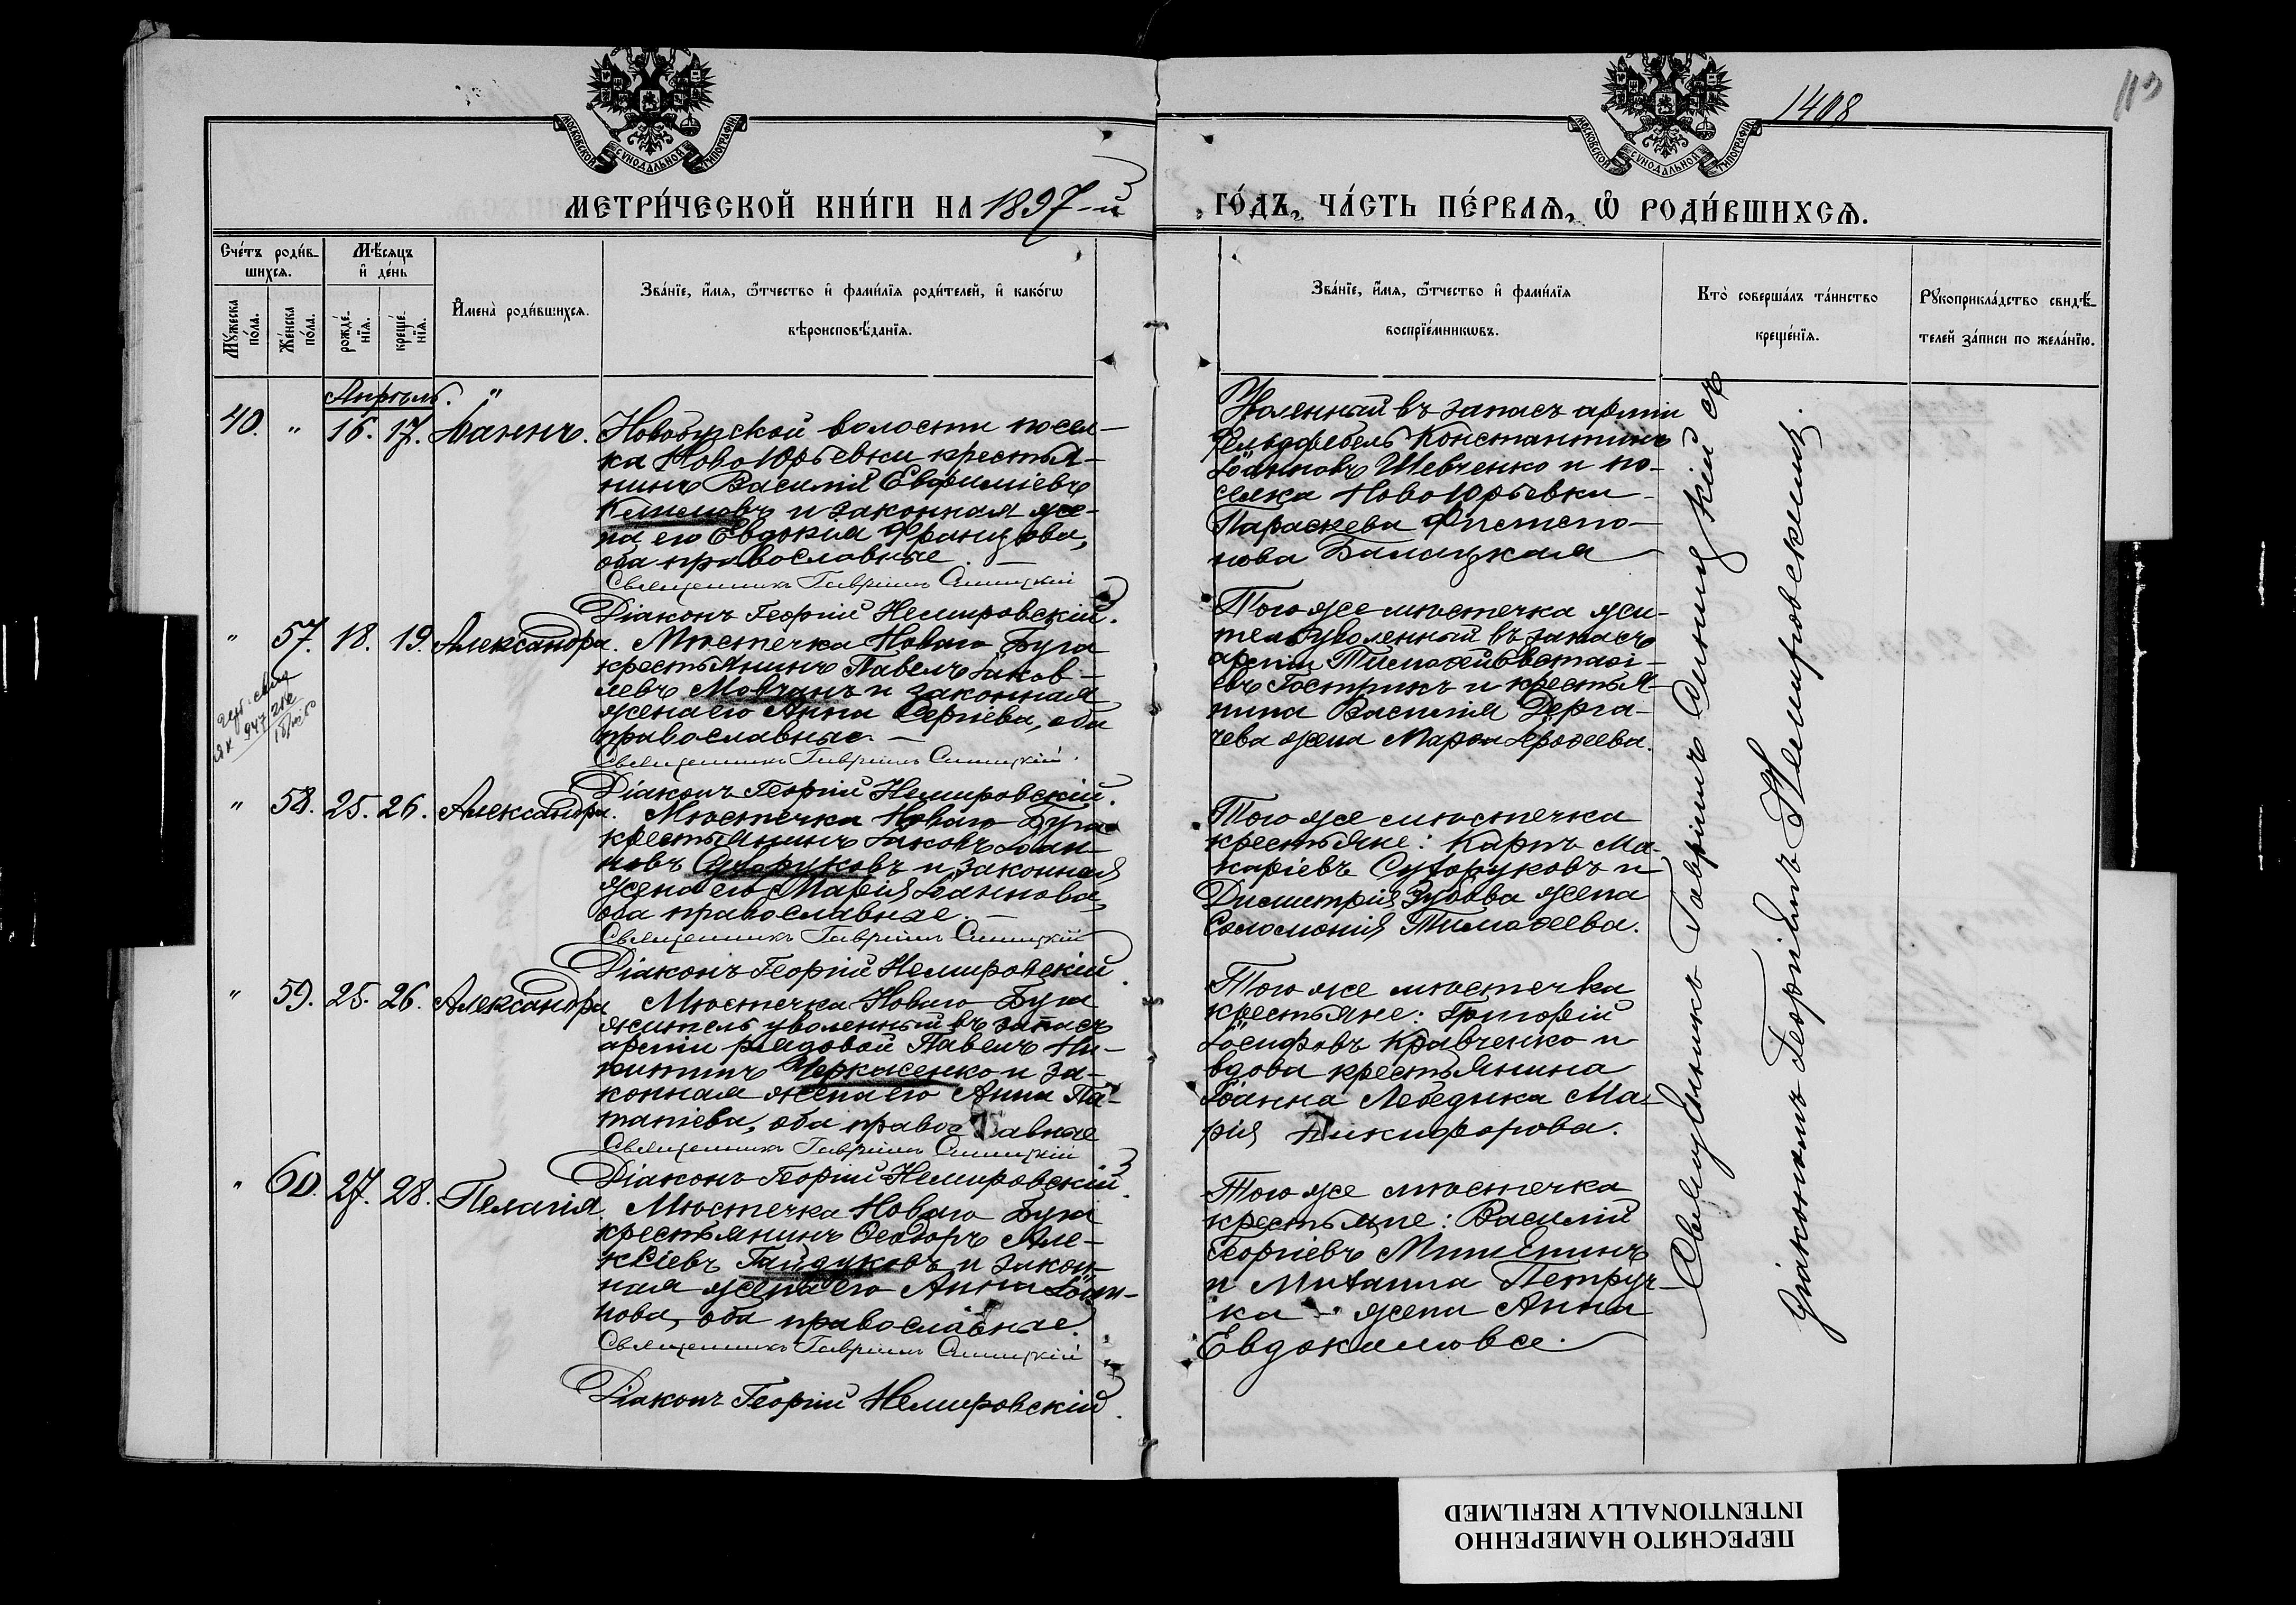 1408
МОСКОВСКОЙ СѴНОДАЛЬНОЙ ТИПОГРАФІИ
МОСКОВСКОЙ СѴНОДАЛЬНОЙ ТИПОГРАФІИ
МЕТРИ́ЧЕСКОЙ КНИ́ГИ НА 1897-й
ГО́ДЪ, ЧА́СТЬ ПЕ́РВАѦ, Ѡ҆ РОДИ́ВШИХСѦ.
Сче́тъ роди́в-
шихсѧ.
Мꙋ́жеска по́ла.
Же́нска по́ла.
Мѣ́сѧцъ
и҆ де́нь
рожде́-
нїѧ.
креще́-
нїѧ.
И҆мена̀ роди́вшихсѧ.
Зва́нїе, и҆́мѧ, ѻ҆́тчество и҆ фами́лїѧ роди́телей, и҆ како́гѡ
вѣроисповѣ́данїѧ.
Зва́нїе, и҆́мѧ, ѻ҆́тчество и҆ фами́лїѧ
воспрїе́мникѡвъ.
Кто̀ соверша́лъ та́инство
креще́нїѧ.
Рꙋкоприкла́дство свидѣ́-
телей за́писи по жела́нїю.
Апрѣль.
40. " 16. 17. Іоаннъ.
Новобугской волости посел-
ка НовоЮрьевки крестья-
нинъ Василій Евфиміевъ
и законная же-
на его Евдокія
оба православные.
Священникъ Гавріилъ Синицкій
Діаконъ Георгій Немировскій.
Уволенный въ запасъ арміи
Фельдфебель Константинъ
Іоанновъ Шевченко и по-
селка НовоЮрьевки
Параскева
" 57. 18. 19. Александра.
Мѣстечка Новаго Буга
крестьянинъ Павелъ Іаков-
левъ Мовчанъ и законная
жена его Анна Сергіева, оба
православные.
Священникъ Гавріилъ Синицкій.
Діаконъ Георгій Немировскій.
Того же мѣстечка жи-
тель уволенный въ запасъ
арміи Тимоѳей Евстаѳі-
евъ Гострикъ и крестья-
нина Василія Дерга-
чева жена Марѳа
" 58. 25. 26. Александра.
Мѣстечка Новаго Буга
крестьянинъ Іаковъ Іоан-
новъ Сухоруковъ и законная
жена его Марія Іоаннова,
оба православные.
Священникъ Гавріилъ Синицкій
Діаконъ Георгій Немировскій.
Того же мѣстечка
крестьяне: Карпъ Ма-
каріевъ Сухоруковъ и
Димитрія Зубова жена
Соломонія Тимоѳеева.
" 59. 25. 26. Александра
Мѣстечка Новаго Буга
житель уволенный въ запасъ
арміи рядовой Павелъ Ни-
китинъ Черкасенко и за-
конная жена его Анна Па-
таніева, оба православные
Священникъ Гавріилъ Синицкій
Діаконъ Георгій Немировскій.
Того же мѣстечка
крестьяне: Григорій
Іосифовъ Кравченко и
вдова крестьянина
Іоанна Лебедика Ма-
рія Никифорова.
" 60. 27. 28. Пелагія
Мѣстечка Новаго Буга
крестьянинъ Ѳеодоръ Але-
ксіевъ Гайдуковъ и закон-
ная жена его Анна Іоан-
нова, оба православные.
Священникъ Гавріилъ Синицкій
Діаконъ Георгій Немировскій.
Того же мѣстечка
крестьяне: Василій
Георгіевъ
и Михаила Петруч-
ка жена Анна
Евдокимова.
Священникъ Гавріилъ Синицкій съ
діакономъ Георгіемъ Немировскимъ.
ПЕРЕСНЯТО НАМЕРЕННО
INTENTIONALLY REFILMED